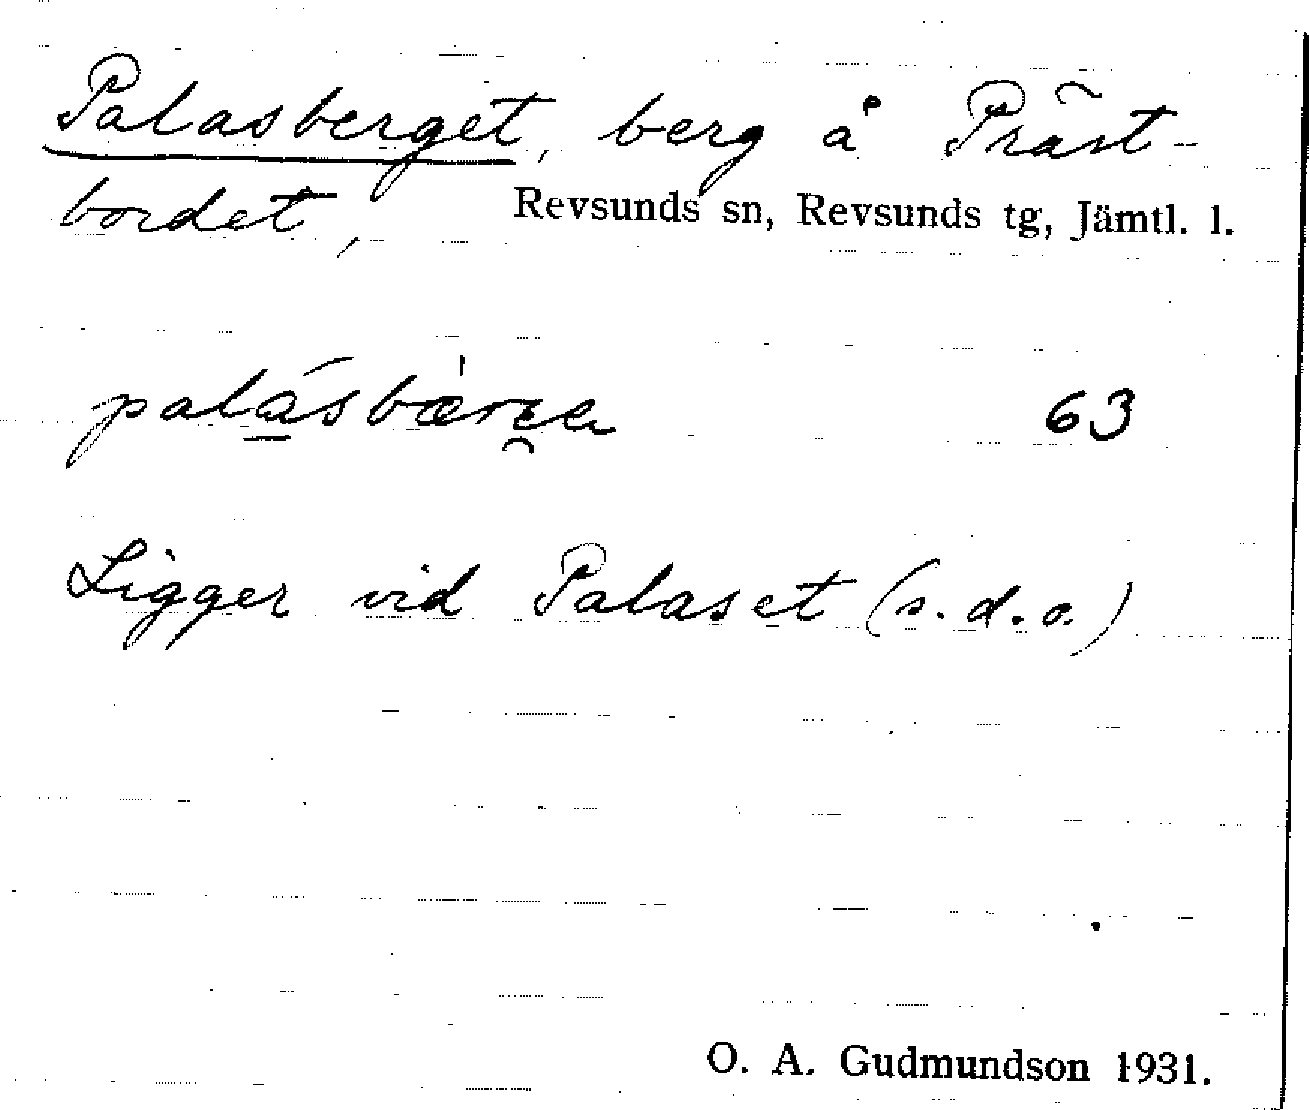 Palasberget, berg å Präst-
bordet, Revsunds sn, Revsunds tg, Jämtl. l.
63
Ligger vid Palaset (s.d.o.)
O. A. Gudmundson 1931.